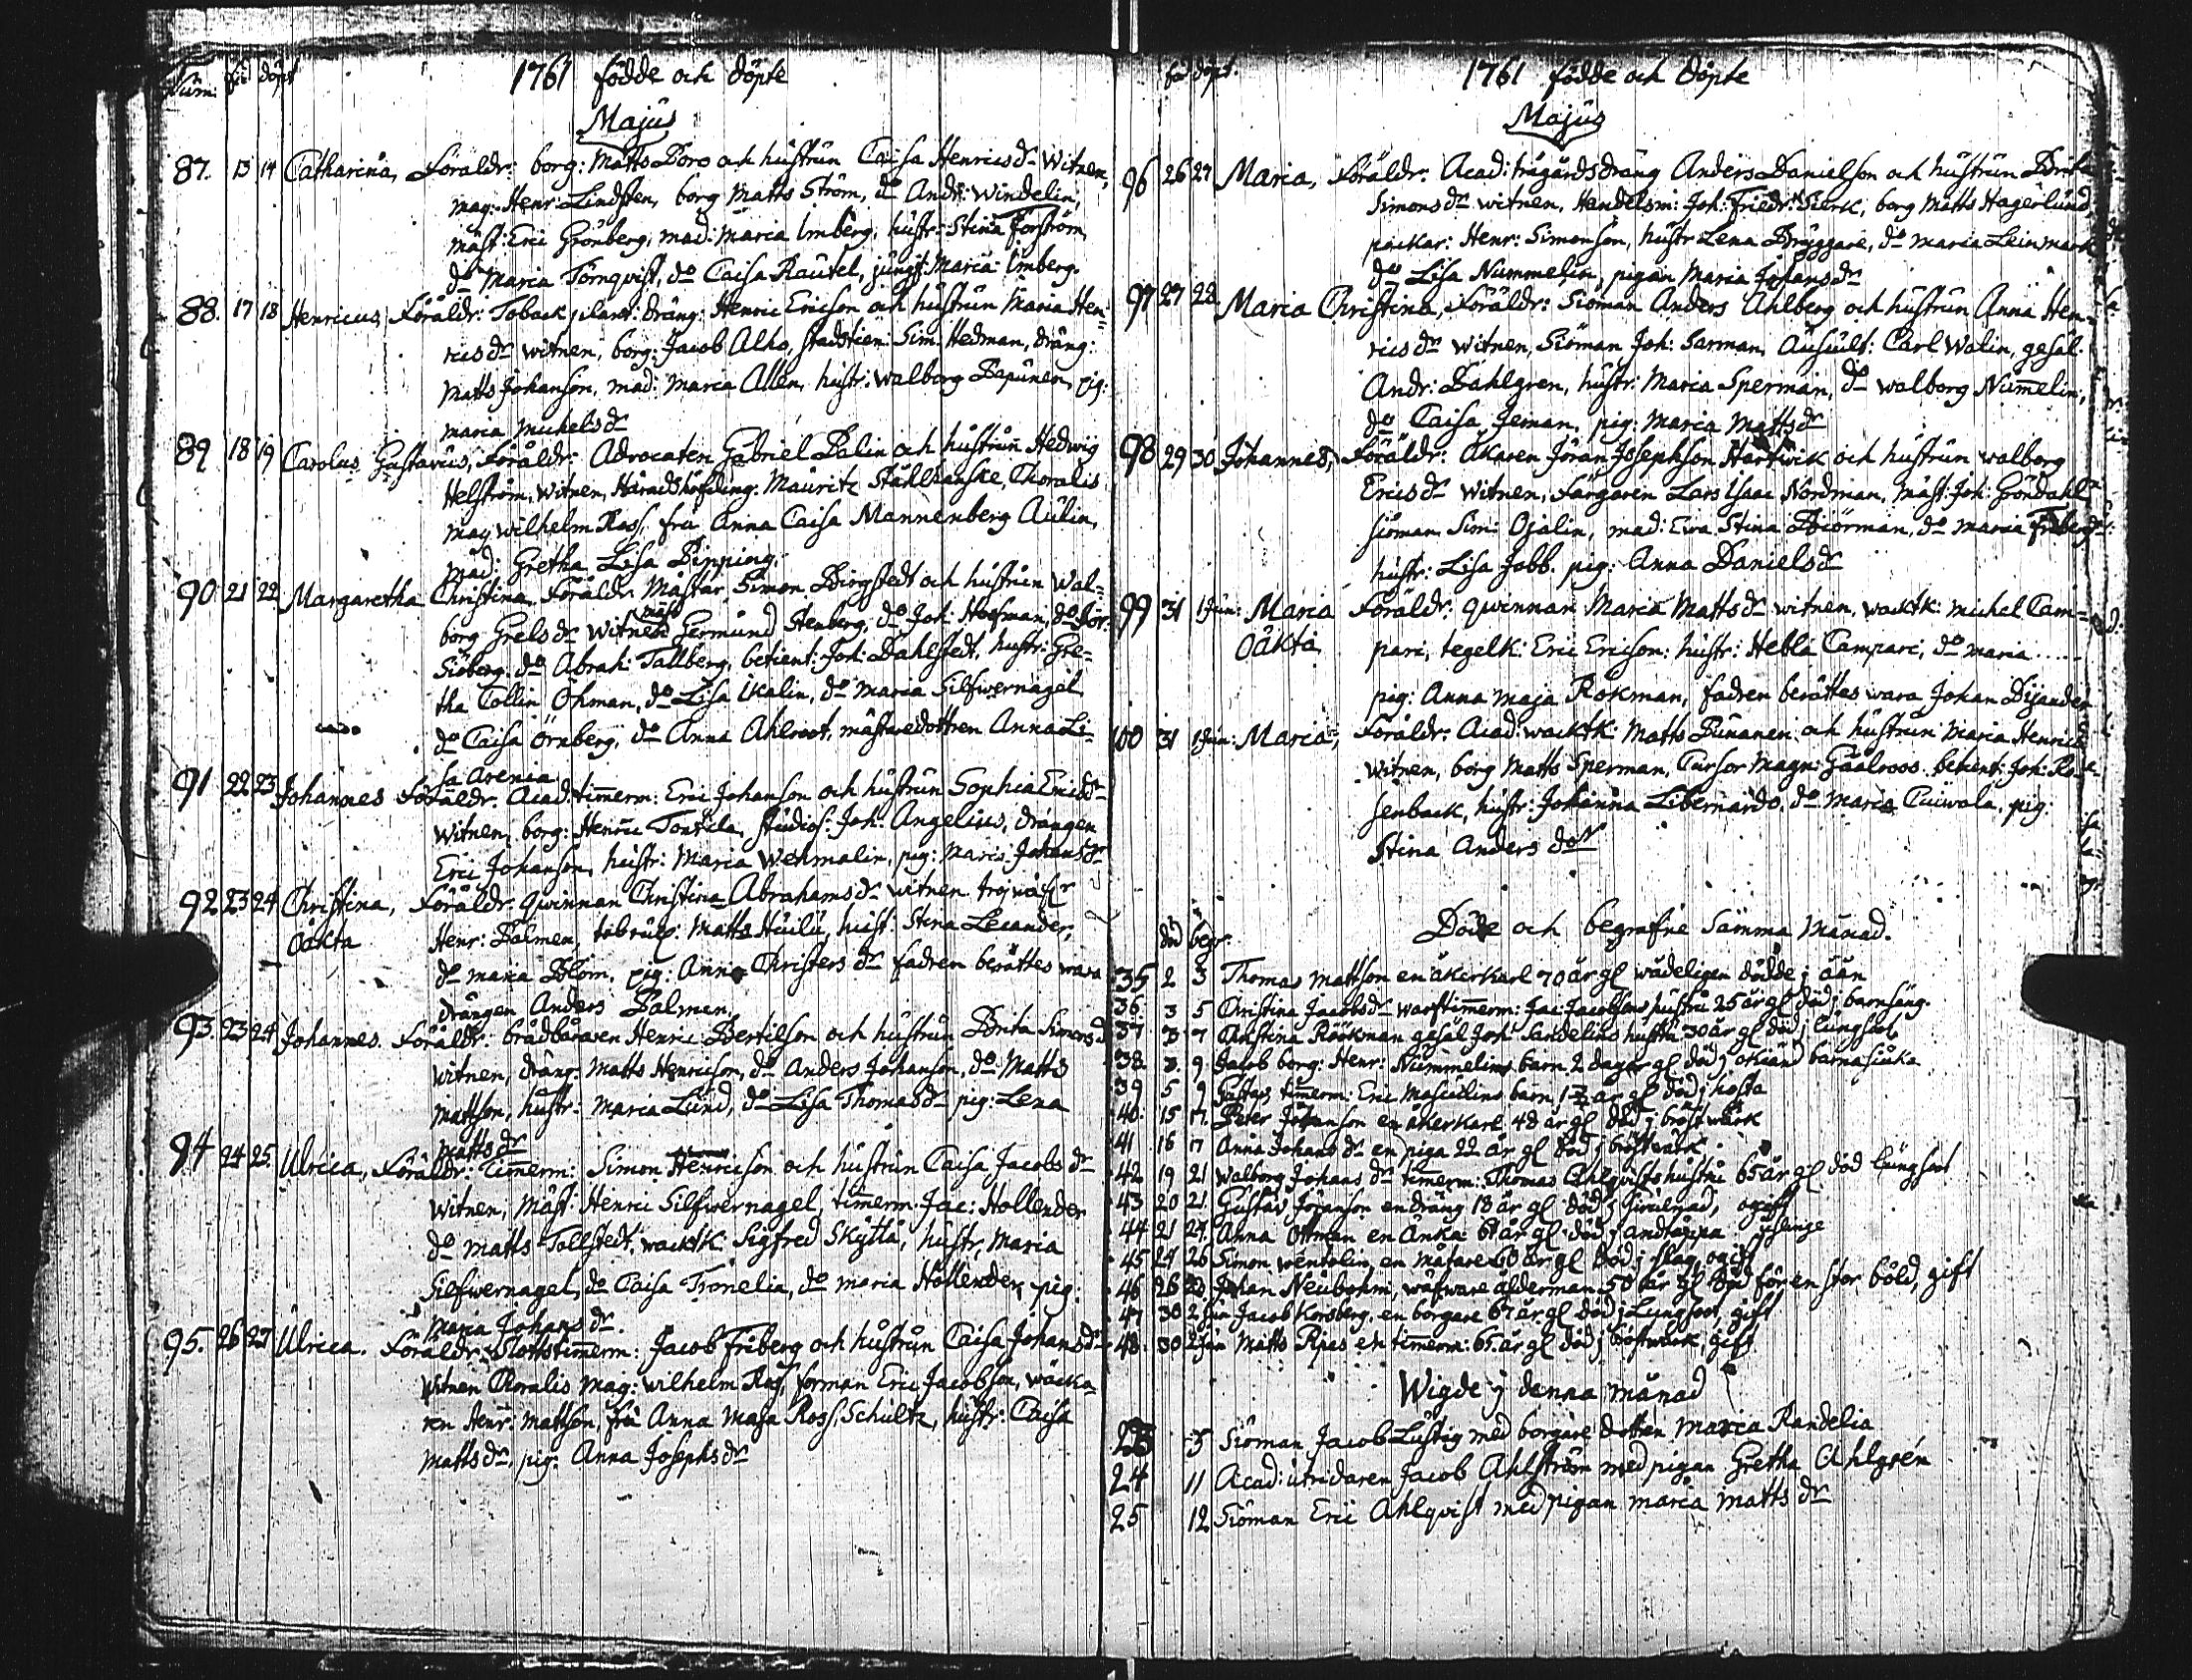 Num: fö döpt
1761 födde och döpte
Majus
87. 13 14 Catharina, Föräldr: borg: Matts Boro och hustrun Caisa Henricsdr Witnen,
mag: Henr: Lindsten, borg Matts Ström, do Andr: Windelin,
mäst: Eric Grönberg, mad: Maria Imberg, hustr: Stina Forström,
do Maria Törnqvist, do Caisa Rautel, jungf: Maria Imberg.
88. 17 18 Henricus, Föräldr: Toback plant: dräng: Henric Ericson och hustrun Maria Hen=
ricsdr witnen, borg: Jacob Alho, stadstien: Sim: Hedman, dräng:
Matts Johanson, mad: Maria Allen, hustr: Walborg Papunen, pig:
Maria Michelsdr
89 18 19 Carolus Gustavus, Föräldr: Advocaten Gabriel Palin och hustrun Hedwig
Helström, Witnen, Häradshöfding: Mauritz Stålhanske, Choralis
mag Wilhelm Ross, fru Anna Caisa Mannenberg Aulin,
mad: Gretha Lisa Pipping.
90 21 22 Margaretha Christina Föräldr Mästar Simon Biörgstedt och hustrun Wal=
borg Grelsdr Witnen mäst Germund Stenberg, do Joh: Hofman, do Jör:
Siöberg, do Abrah: Tallberg, betient: Joh: Dahlstedt, hustr: Gre=
tha Collin Öhman, do Lisa Ikalin, do Maria Silfwernagel
do Caisa Örnberg, do Anna Ahlroot, mästaredottren Anna Li=
sa Arenia
91 22 23 Johannes Föräldr. Acad: timmerm: Eric Johanson och hustrun Sophia Ericsdr
Witnen, borg: Henric Tontila, studios: Joh: Angelius, drängen
Eric Johanson, hustr: Maria Wehmalin, pig: Maria Johansdr
92 23 24 Christina, Föräldr. qwinnan Christina Abrahamsdr witnen
Oäkta Henr: Palmen, Matts Huilu, hust: Stina Lecander,
do Maria Blom. pig: Anna Christersdr fadren berättes wara
drängen Anders Palmen,
93. 23 24 Johannes. Föräldr: brädbäraren Henric Bertilson och hustrun Brita Simonsd
witnen, dräng: Matts Henricson, do Anders Johanson, do Matts
Mattson, hustr: Maria Lund, do Lisa Thomasdr pig: Lena
Mattsdr
94 24 25. Ulrica, Föräldr: Timmerm: Simon Henricson och hustrun Caisa Jacobsdr
Witnen, Mäst: Henric Silfwernagel, timmerm Jac: Hollender
do Matts Tollstedt, wacktk: Sigfred Skyttä, hustr, Maria
Silfwernagel, do Caisa Tronelia, do Maria Hollender, pig:
Maria Johansdr.
95. 26 27 Ulrica. Föräldr, Slottstimmerm: Jacob Friberg och hustrun Caisa Johansdr
Witnen Choralis Mag: Wilhelm Ross, forman Eric Jacobson,
Henr: Mattson, fru Anna Maja Ross, Schultz, hustr: Caisa
Mattsdr, pig: Anna Josephsdr
fö döpt.
1761 födde och döpte
Majus
96 26 27 Maria, Föräldr: Acad: trägårdsdräng Anders Danielson och hustrun Brita
Simonsdr witnen, Handelsm: Joh: Friedr: Sierk, borg Matts Hagerlund,
packar: Henr: Simonson, hustr Lena Bryggare, do Maria Leinmark
do Lisa Nummelin, pigan Maria Johansdr
97 27 28 Maria Christina, Föräldr: Sioman Anders Ahlberg och hustrun Anna Hen=
ricsdr Witnen, Siöman Joh: Sarman, Auscult: Carl Walin, gesäl:
Andr: Dahlgren, hustr: Maria Sperman, do Walborg Nummelin,
do Caisa Jeman, pig: Maria Mattsdr
98 29 30 Johannes, Föräldr: Åkaren Jöran Josephson Hartwik och hustrun walborg
Ericsdr Witnen, Färgaren Lars Isaac Nordman, Mäst: Joh: Gröndahl,
siöman Sim: Ojalin, mad: Ewa Stina Biörman, do Maria Friberg
hustr: Lisa Jobb. pig: Anna Danielsdr
99 31 1 Jun: Maria Föräldr: qwinnan Maria Mattsdr witnen, wacktk: Michel Cam=
Oäkta pari, tegelk: Eric Ericson: hustr: Hebla Campari, do Maria .....
pig: Anna Maja Rökman, fadren berättes wara Johan Dijander
100 31 1 Jun: Maria, Föräldr: Acad: wacktk: Matts Punanen och hustrun Maria Henrics
Witnen, borg Matts Sperman, Cursor Magn: Gåälroos betient: Joh: Ro=
senback, hustr: Johanna Libernardo, do Maria Cuiwala, pig:
Stina Andersdr
Döde och begrafne Samma Månad.
död begr.
35 2 3 Thomas Mattson en åkerkarl 70 år gl wådeligen dödde j åån
36. 3 5 Christina Jacobsdr warftimmerm: Jac: Jacobsons hustru 25 år gl död j barnsäng.
37 3 7 Christina Röökman gesäl Joh: Sandelins hustru 30 år gl död j lungsot
38. 3. 9. Jacob borg: Henr: Nummelins barn 2 dagar gl död j okiänd barnasiuka
39 5 9 Gustav, timmerm: Eric Masculins barn 1 1/2 år gl död j hosta
40. 15 17. Peter Johanson en åkerkarl 48 år gl död j bröstwärk
41 16 17 Anna Johansdr en piga 22 år gl död j bröstwärk
42 19 21 Walborg Johansdr timmerm: Thomas Ahlqvists hustru 65 år gl död lungsoot
43 20 21. Gustav Johanson en dräng 18 år gl död j ogift
44 21 24. Anna Ottman en Änka 61 år gl död j andtäppa
45 24 26 Simon Wentolin, en mätare 50 år gl död j slag, ogift
46 26 Johan Neubohm, wäfware ålderman 50 år gl död för en stor böld, gift
47 30 2 Jun Jacob Korsberg, en borgare 67 år gl död j Lungsoot, gift
48. 30 2 Jun Matts Pipas en timmerm: 65. år gl död j böstwärk, gift
Wigde j denna månad
23 3 Siöman Jacob Lustig med borgare dottren Maria Randelia
24 11 Acad: utridaren Jacob Ahlström med pigan Gretha Ahlgrén
25 12 Siöman Eric Ahlqvist med pigan Maria Mattsdr